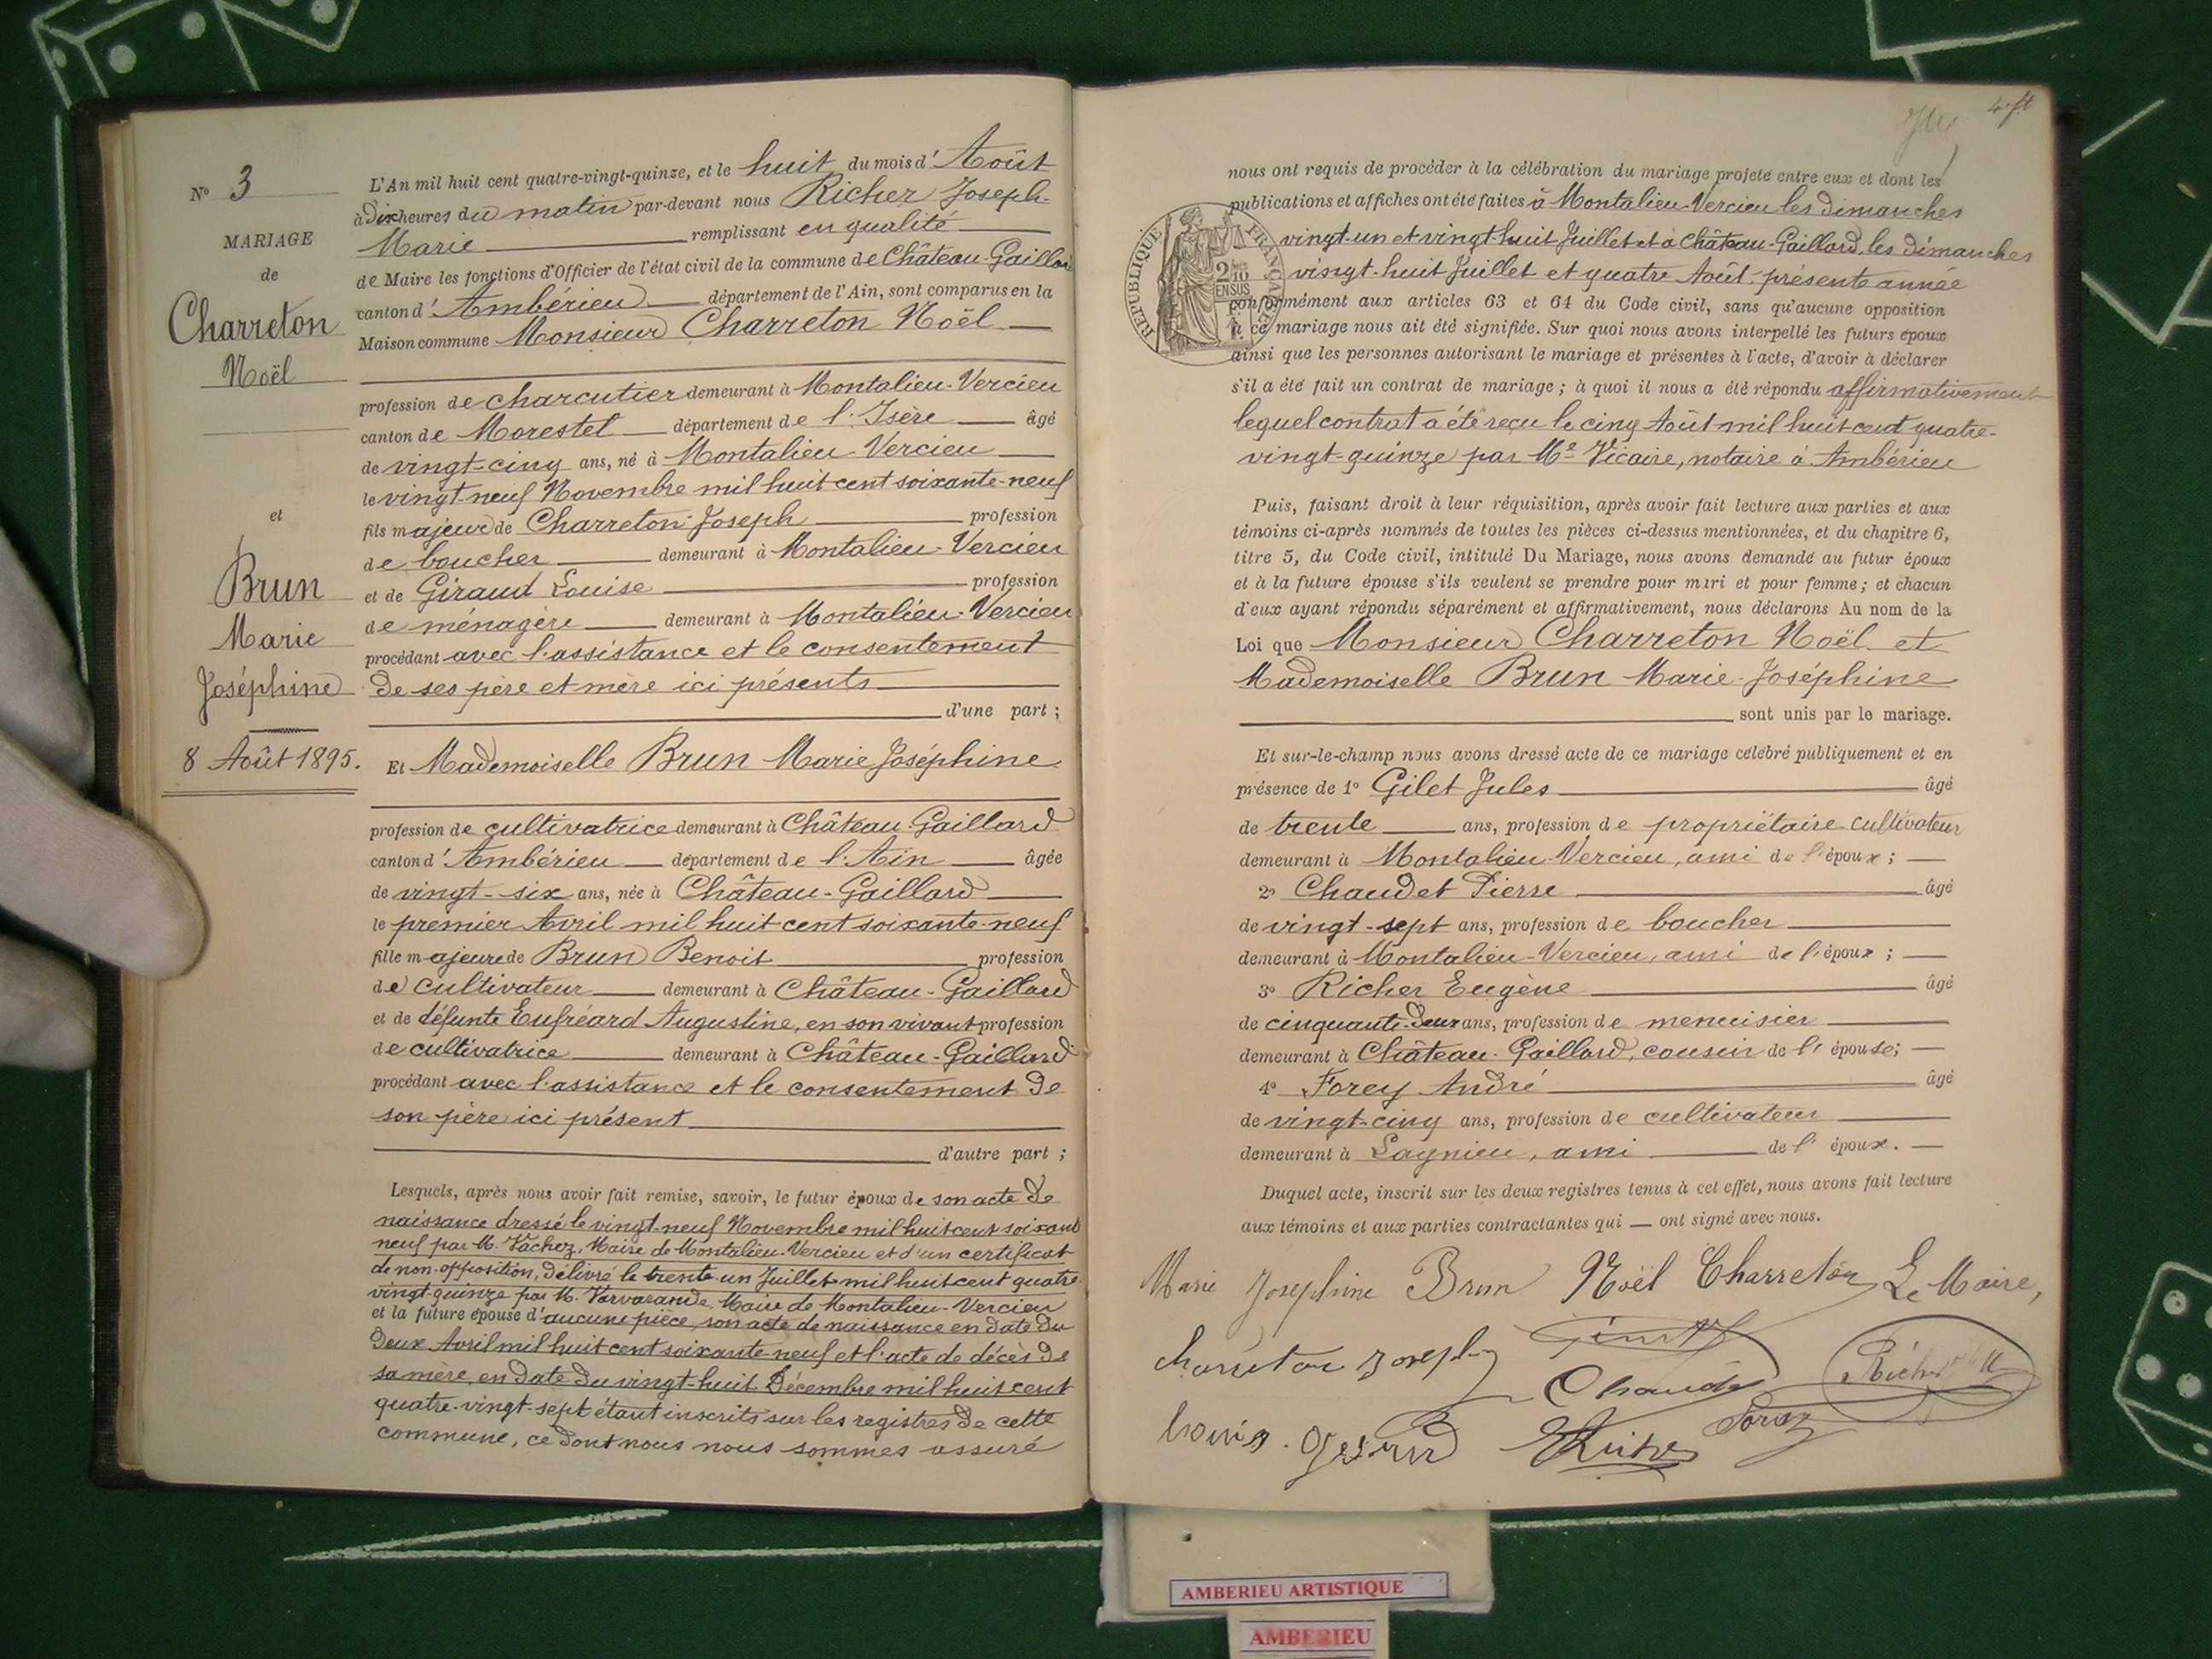 N° 3
MARIAGE
de
Charreton
Noël
et
Brun
Marie
Joséphine
8 Août 1895.
L'An mil huit cent quatre-vingt-quinze, et le huit du mois d'Août
à dix heures du matin par-devant nous Richer Joseph-
Marie remplissant en qualité
de Maire les fonctions d'Officier de l'état civil de la commune de Château-Gaillard
canton d'Ambérieu département de l'Ain, sont comparus en la
Maison commune Monsieur Charreton Noël
profession de charcutier demeurant à Montalieu-Vercieu
canton de Morestel département de l'Isère âgé
de vingt-cinq ans, né à Montalieu-Vercieu
le vingt-neuf Novembre mil huit cent soixante-neuf
fils majeur de Charreton Joseph profession
de boucher demeurant à Montalieu-Vercieu
et de Giraud Louise profession
de ménagère demeurant à Montalieu-Vercieu
procédant avec l'assistance et le consentement
de ses père et mère ici présents
d'une part ;
Et Mademoiselle Brun Marie Joséphine
profession de cultivatrice demeurant à Château-Gaillard
canton d'Ambérieu département de l'Ain âgée
de vingt-six ans, née à Château-Gaillard
le premier Avril mil huit cent soixante-neuf
fille majeure de Brun Benoit profession
de cultivateur demeurant à Château-Gaillard
et de défunte Eufréard Augustine, en son vivant profession
de cultivatrice demeurant à Château-Gaillard
procédant avec l'assistance et le consentement de
son père ici présent
d'autre part ;
Lesquels, après nous avoir fait remise, savoir, le futur époux de son acte de
naissance dressé le vingt-neuf Novembre mil huit cent soixante
neuf par M. Vachez, Maire de Montalieu-Vercieu et d'un certificat
de non-opposition, délivré le trente-un Juillet mil huit cent quatre-
vingt-quinze par M. Maire de Montalieu-Vercieu
et la future épouse d'aucune pièce, son acte de naissance en date du
deux Avril mil huit cent soixante-neuf et l'acte de décès de
sa mère en date du vingt-huit Décembre mil huit cent
quatre-vingt-sept étant inscrits sur les registres de cette
commune, ce dont nous nous sommes assuré
nous ont requis de procéder à la célébration du mariage projeté entre eux et dont les
publications et affiches ont été faites à Montalieu-Vercieu les dimanches
vingt-un et vingt-huit Juillet et à Château-Gaillard, les dimanches
vingt-huit Juillet et quatre Août présente année
conformément aux articles 63 et 64 du Code civil, sans qu'aucune opposition
à ce mariage nous ait été signifiée. Sur quoi nous avons interpellé les futurs époux
ainsi que les personnes autorisant le mariage et présentes à l'acte, d'avoir à déclarer
s'il a été fait un contrat de mariage ; à quoi il nous a été répondu affirmativement
lequel contrat a été reçu le cinq Août mil huit cent quatre-
vingt-quinze par Me Vicaire, notaire à Ambérieu
Puis, faisant droit à leur réquisition, après avoir fait lecture aux parties et aux
témoins ci-après nommés de toutes les pièces ci-dessus mentionnées, et du chapitre 6,
titre 5, du Code civil, intitulé Du Mariage, nous avons demandé au futur époux
et à la future épouse s'ils veulent se prendre pour mari et pour femme ; et chacun
d'eux ayant répondu séparément et affirmativement, nous déclarons Au nom de la
Loi que Monsieur Charreton Noël et
Mademoiselle Brun Marie-Joséphine
sont unis par le mariage.
Et sur-le-champ nous avons dressé acte de ce mariage célébré publiquement et en
présence de 1° Gilet Jules âgé
de trente ans, profession de propriétaire-cultivateur
demeurant à Montalieu-Vercieu, ami de l'époux ;
2° Chaudet Pierre âgé
de vingt-sept ans, profession de boucher
demeurant à Montalieu-Vercieu, ami de l'époux ;
3° Richer Eugène âgé
de cinquante-deux ans, profession de menuisier
demeurant à Château-Gaillard, cousin de l'épouse ;
4° Forey André âgé
de vingt-cinq ans, profession de cultivateur
demeurant à Lagnieu, ami de l'époux.
Duquel acte, inscrit sur les deux registres tenus à cet effet, nous avons fait lecture
aux témoins et aux parties contractantes qui ont signé avec nous.
Marie Josephine Brun Noël Charreton Le Maire,
REPUBLIQUE FRANÇAISE
2/10 EN SUS
AMBERIEU ARTISTIQUE
AMBERIEU